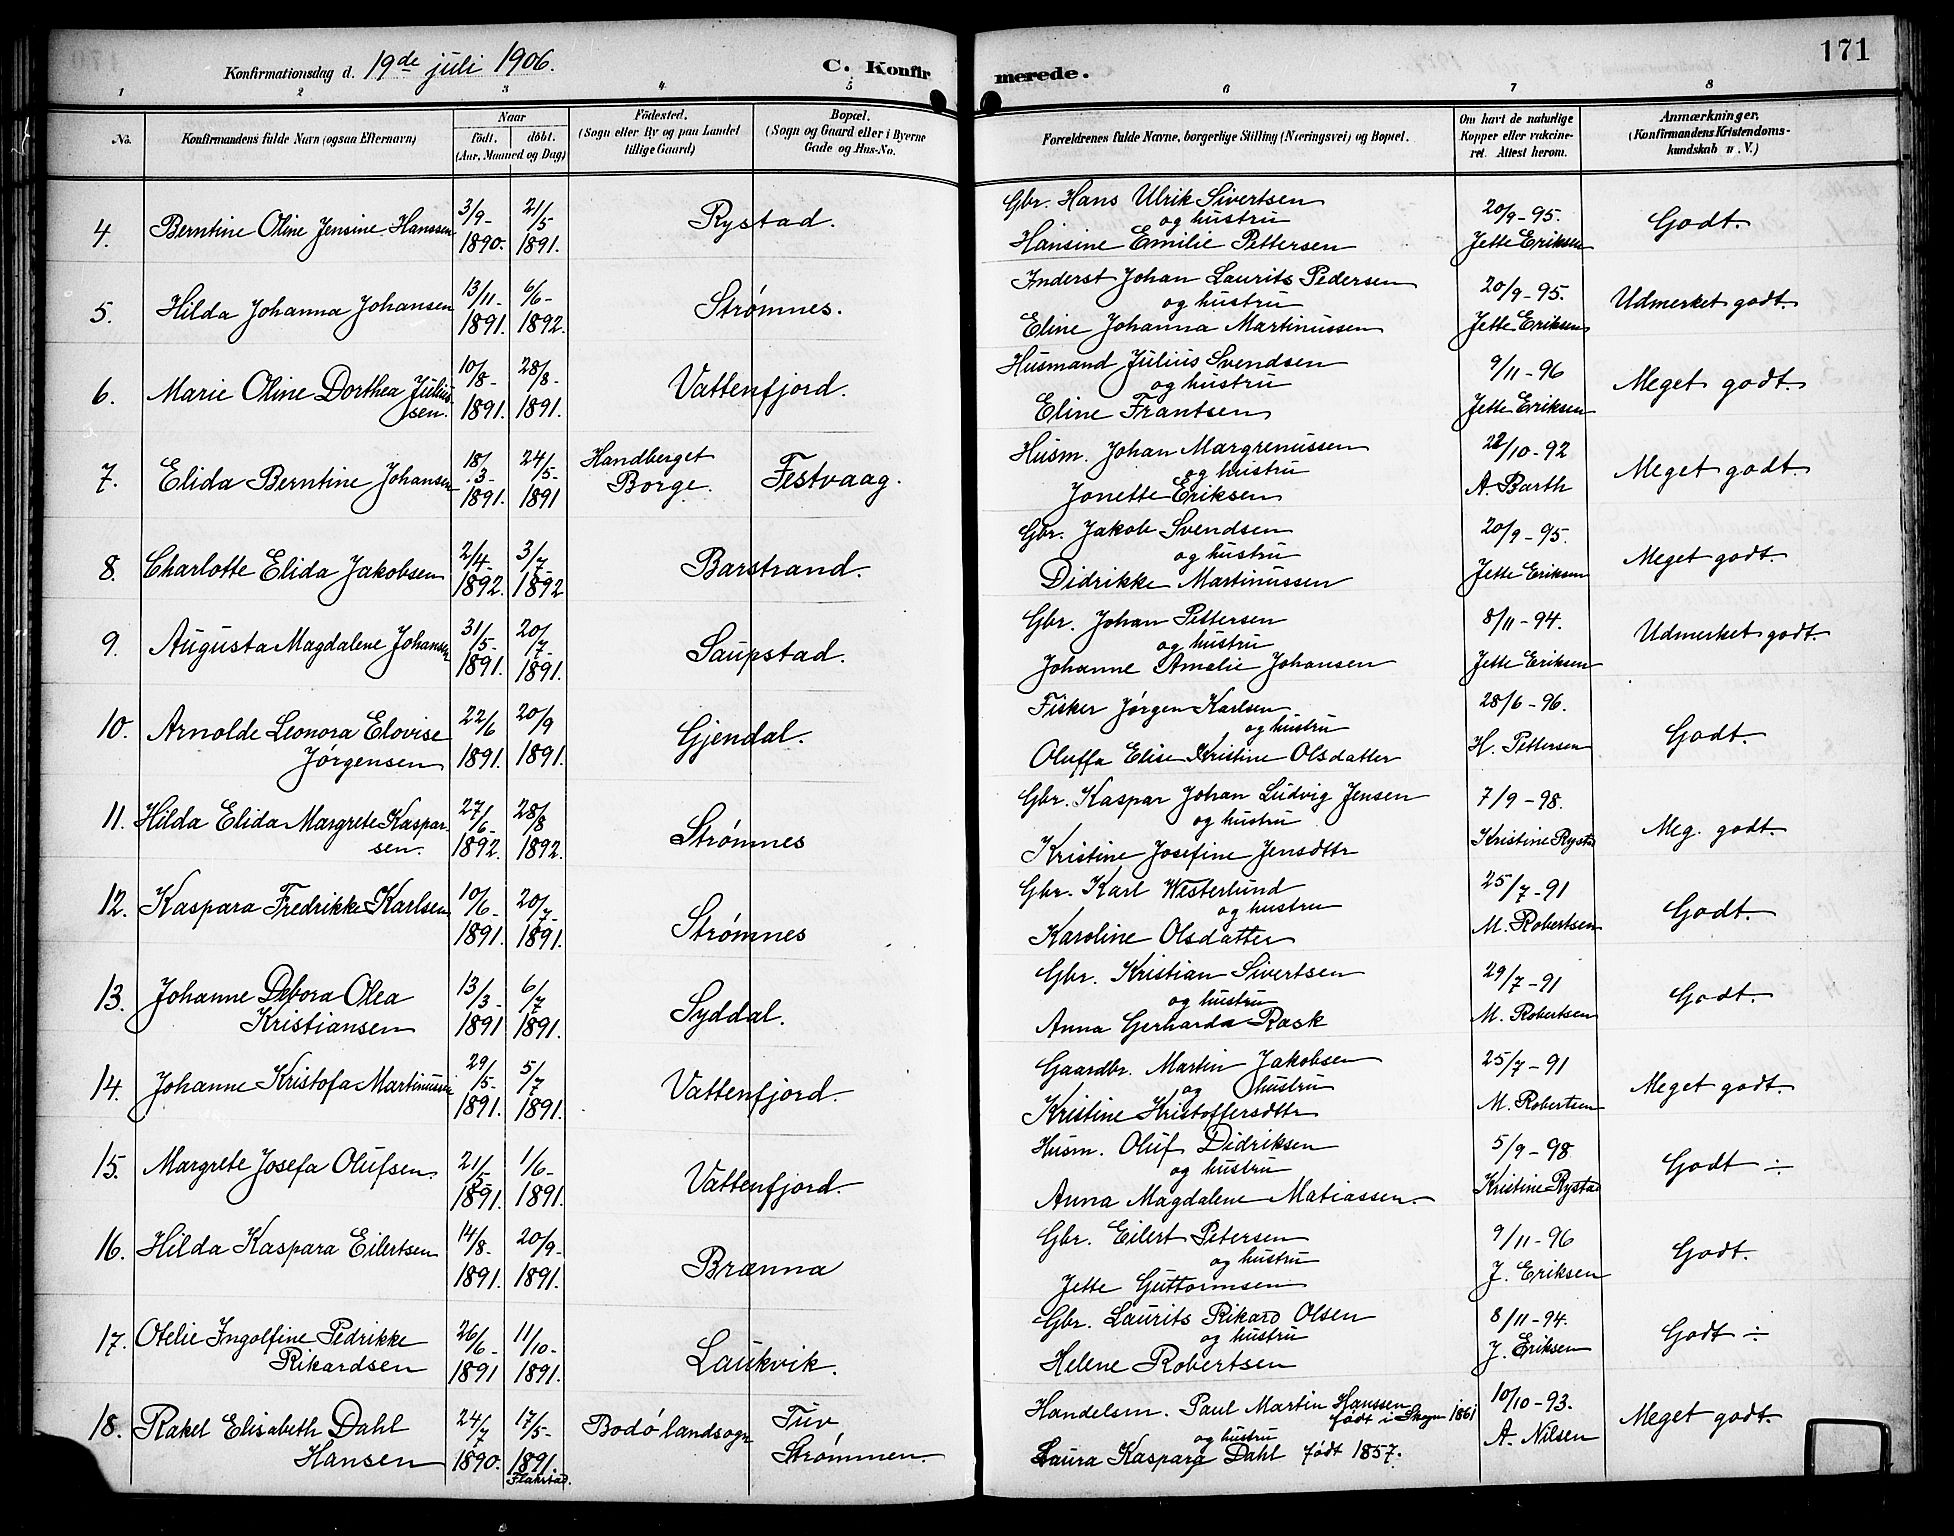 Konfirmationsdag d. 19de juli 1906. C. Konfirmerede. 171
1 2 3 4 5 6 7 8
No. Konfirmandens fulde Navn (ogsaa Efternavn) Naar födt. döbt. (Aar, Maaned og Dag) Födested. (Sogn eller By og paa Landet tillige Gaard) Bopæl. (Sogn og Gaard eller i Byerne Gade og Hus-No. Forældrenes fulde Navne, borgerlige Stilling (Næringsvei) og Bopæl. Om havt de naturlige Kopper eller vakcineret. Attest herom. Anmærkninger. (Konfirmandens Kristendomskundskab u. V.)
4. Berntine Oline Jensine Hanssen 3/9- 1890. 21/5 1891. Rystad. Gbr. Hans Ulrik Sivertsen og hustru Hansine Emilie Pettersen 20/9-95. Jette Eriksen Godt.
5. Hilda Johanna Johansen 13/11- 1891. 6/6- 1892. Strømnes. Inderst Johan Laurits Pedersen og hustru Eline Johanna Martinussen 20/9-95. Jette Eriksen Udmerket godt.
6. Marie Oline Dorthea Juliussen. 10/8- 1891. 28/8- 1891. Vattenfjord. Husmand Julius Svendsen og hustru Eline Frantsen 9/11-96 Jette Eriksen Meget godt.
7. Elida Berntine Johansen 18/3- 1891. 24/5- 1891 Handberget Borge. Festvaag. Husm. Johan Margrenussen og hustru Jonette Eriksen 22/10-92 A. Barth Meget godt.
8. Charlotte Elida Jakobsen 2/4- 1892. 3/7- 1892 Barstrand. Gbr. Jakob Svendsen og hustru Didrikke Martinussen 20/9-95. Jette Eriksen Meget godt.
9. Augusta Magdalene Johansen 31/5- 1891. 20/7- 1891. Saupstad. Gbr. Johan Pettersen og hustru Johanne Amalie Johansen 8/11-94. Jette Eriksen Udmerket godt.
10. Arnolde Leonora Elovise Jørgensen 22/6 1891. 20/9 1891. Gjendal. Fisker Jørgen Karlsen og hustru Oluffa Elise Kristine Olsdatter 28/6-96. H. Pettersen Godt.
11. Hilda Elida Margrete Kasparsen. 27/6- 1892. 28/8 1892. Strømnes Gbr. Kaspar Johan Ludvig Jensen og hustru Kristine Josefine Jensdttr 7/9-98. Kristine Rystad Meg. godt.
12. Kaspara Fredrikke Karlsen 10/6- 1891. 20/7- 1891. Strømnes Gbr. Karl Westerlund og hustru Karoline Olsdatter 25/7-91 M. Robertsen Godt.
13. Johanne Debora Olea Kristiansen 13/3- 1891 6/7 1891. Syddal. Gbr. Kristian Sivertsen og hustru Anna Gerharda Rask 29/7-91 M. Robertsen Godt.
14. Johanne Kristofa Martinussen 29/5- 1891. 5/7 1891. Vattenfjord. Gaardbr. Martin Jakobsen og hustru Kristine Kristoffersdttr 25/7-91 M. Robertsen Meget godt.
15. Margrete Josefa Olufsen. 21/5- 1891. 1/6- 1891. Vattenfjord. Husm. Oluf Didriksen og hustru Anna Magdalene Matiassen. 5/9-98. Kristine Rystad Godt ÷
16. Hilda Kaspara Eilertsen 14/8- 1891. 20/9- 1891. Brænna Gbr. Eilert Petersen og hustru Jette Guttormsen 9/11-96 J. Eriksen Godt.
17. Otelie Ingolfine Pedrikke Rikardsen 26/6- 1891 11/10- 1891. Laukvik. Gbr. Laurits Rikard Olsen og hustru Helene Robertsen 8/11-94. J. Eriksen Godt ÷
18. Rakel Elisabeth Dahl Hansen 24/7 1890. 17/5- 1891. Flakstad. Bodø landsogn Tuv Strømmen. Handelsm. Paul Martin Hanssen født i 1861 og hustru Laura Kaspara Dahl født 1857. 10/10-93. A. Nilsen Meget godt.